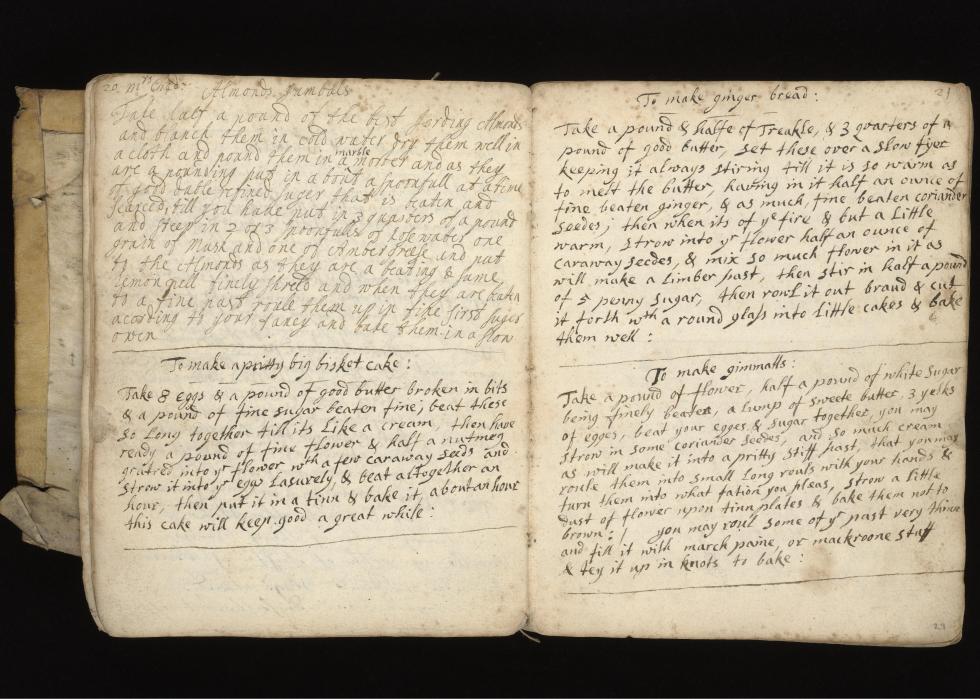 20 Mrs Almonds Jumbals
Take half a pound of the best Jording Almonds
and blanch them in cold water dry them well in
a cloth and pound them in a marble morter and as they
are a pounding put in a bout a spoonfull at a time
of good duble refined suger that is beaten and
searced, till you have put in 3 quarters of a pound
and steep in 2 or 3 spoonfuls of Rosewater one
grain of Musk and one of Ambergreese and put
to the Almonds as they are a beating & some
lemon pell finely shred and when they are beaten
to a fine past roule them up in fine sift suger
acording to your fancy and bake them in a slow
oven
To make a pritty big bisket cake:
Take 8 eggs & a pound of good butter broken in bits
& a pound of fine sugar beaten fine; beat these
so Long together till its Like a cream, then have
ready a pound of fine flower & half a nutmeg
grated into yr flower wth a few caraway seeds and
strow it into yr eggs Lasurely, & beat altogether an
hour, then put it in a tinn & bake it, about an hour
this cake will keep good a great while:
21
To make ginger bread:
Take a pound & halfe of Treakle, & 3 quarters of a
pound of good butter, set these over a slow fyer
keeping it always stiring till it is so warm as
to melt the butter, having in it half an ounce of
fine beaten ginger, & as much, fine beaten coriander
seedes; then when its of ye fire & but a Little
warm, strow into yr flower half an ounce of
caraway seedes, & mix so much flower in it as
will make a Limber past, then stir in half a pound
of 5 penny sugar, then rowl it out braud & cut
it forth wth a round glass into Little cakes & bake
them well:
To make gimmalls:
Take a pound of flower, half a pound of white sugar
being finely beaten, a Lump of sweete butter, 3 yelks
of egges, beat your egges & sugar together, you may
strow in some coriander seedes, and so much cream
as will make it into a pritty stiff past, that you may
roule them into small Long rouls with your hands &
turn them into what fation you pleas, strow a little
dust of flower upon tinn plates & bake them not to
brown: you may roul some of yr past very thinn
and fill it with march paine, or mackroone stuff
& tey it up in knots to bake: